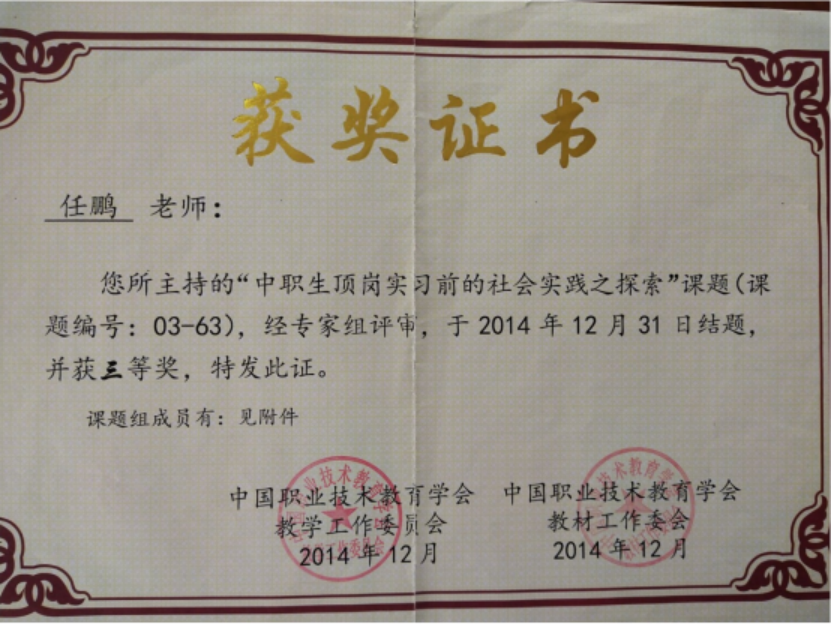 获奖证书
任鹏 老师：
您所主持的“中职生顶岗实习前的社会实践之探索”课题（课
题编号：03-63），经专家组评审，于 2014 年 12 月 31 日结题，
并获三等奖，特发此证。
课题组成员有：见附件
中国职业技术教育学会 中国职业技术教育学会
教学工作委员会 教材工作委会
2014 年 12 月 2014 年 12 月